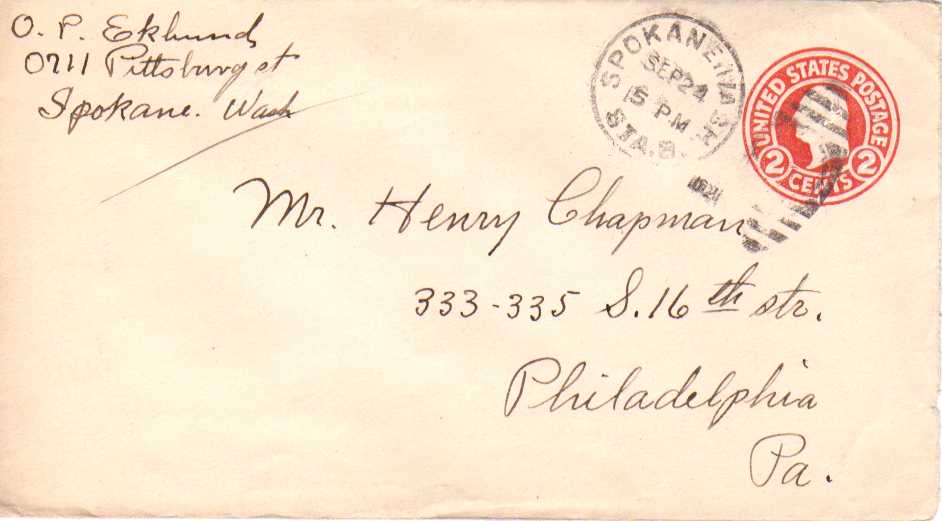 O. P. Eklund
0711 Pittsburg st
Spokane. Wash
SPOKANE, WASH.
SEP 24
15 PM
STA. B.
UNITED STATES POSTAGE
2 CENTS 2
Mr. Henry Chapman
333-335 S. 16th str.
Philadelphia
Pa.